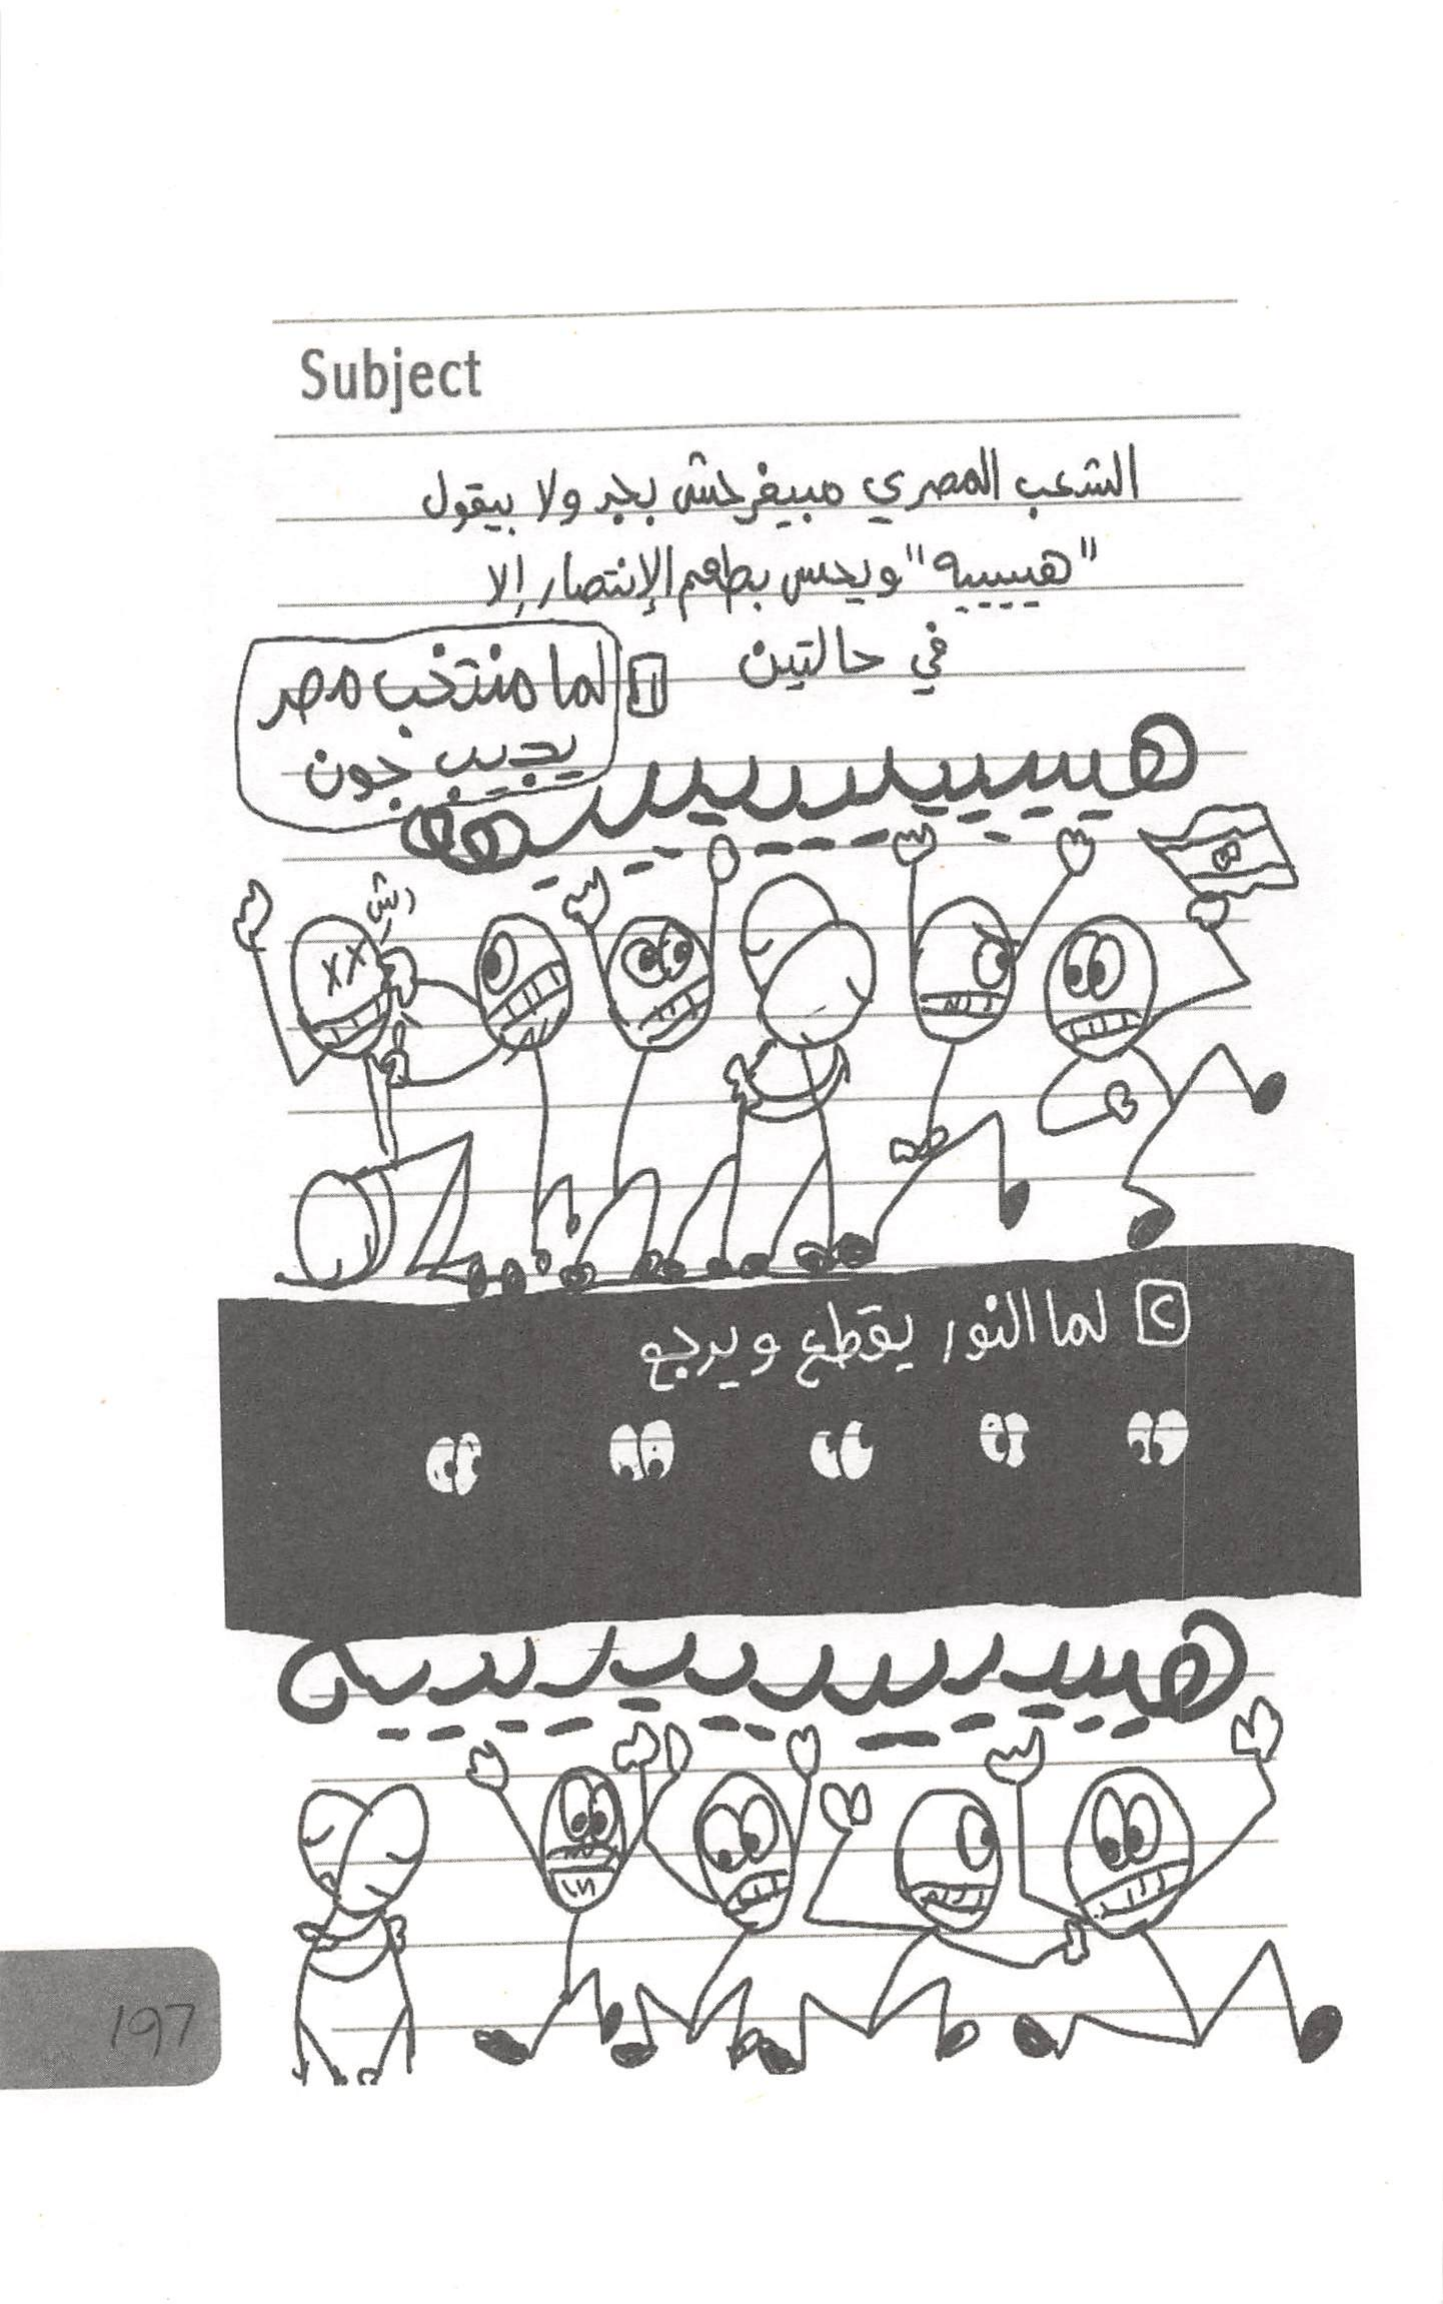 Subject
الشعب المصري مبيفرحش بجد ولا بيقول
"هييييه" ويحس بطعم الإنتصار إلا
في حالتين
1 لما منتخب مصر
يجيب جون
هييييييييييه
رش
2 لما النور يقطع ويرجع
هييييييييييييه
197